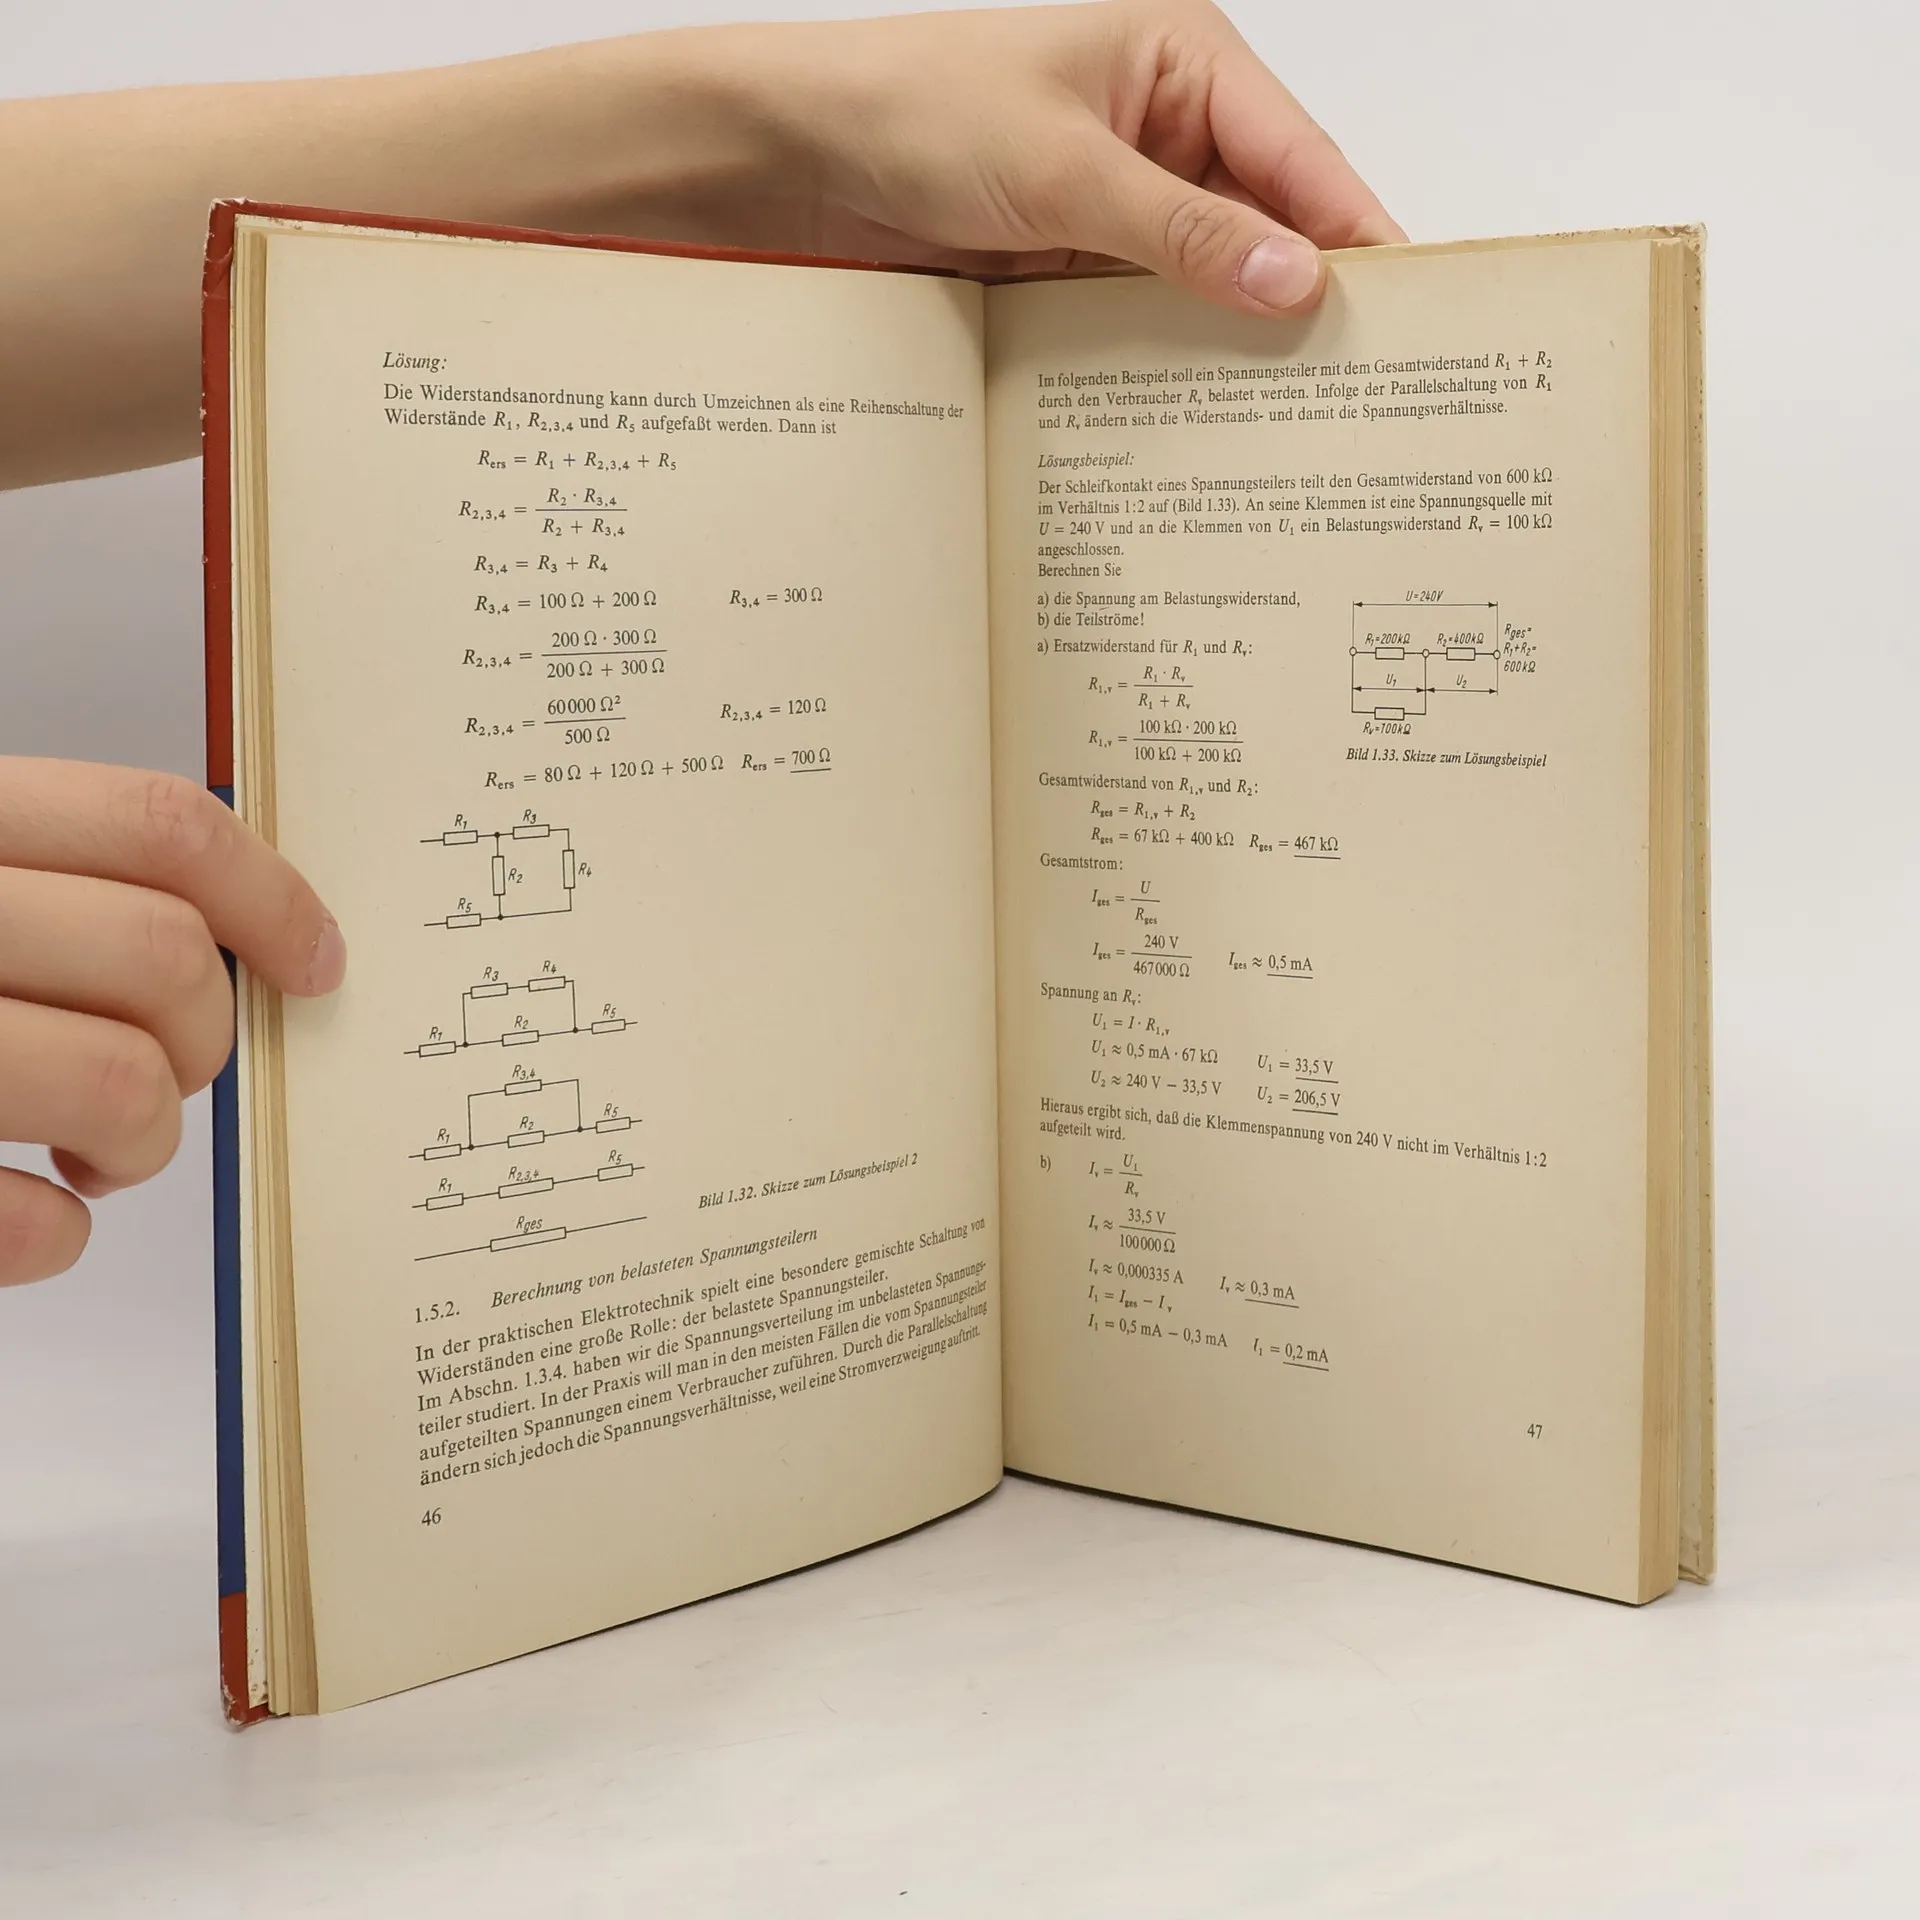 Lösung:
Die Widerstandsanordnung kann durch Umzeichnen als eine Reihenschaltung der
Widerstände R₁, R₂,₃,₄ und R₅ aufgefaßt werden. Dann ist
Rers = R₁ + R₂,₃,₄ + R₅
R₂,₃,₄ = R₂ · R₃,₄ / R₂ + R₃,₄
R₃,₄ = R₃ + R₄
R₃,₄ = 100 Ω + 200 Ω R₃,₄ = 300 Ω
R₂,₃,₄ = 200 Ω · 300 Ω / 200 Ω + 300 Ω
R₂,₃,₄ = 60000 Ω² / 500 Ω R₂,₃,₄ = 120 Ω
Rers = 80 Ω + 120 Ω + 500 Ω Rers = 700 Ω
R₁ R₃
R₂ R₄
R₅
R₃ R₄
R₁ R₂ R₅
R₃,₄
R₁ R₂ R₅
R₁ R₂,₃,₄ R₅
Rges
Bild 1.32. Skizze zum Lösungsbeispiel 2
1.5.2. Berechnung von belasteten Spannungsteilern
In der praktischen Elektrotechnik spielt eine besondere gemischte Schaltung von
Widerständen eine große Rolle: der belastete Spannungsteiler.
Im Abschn. 1.3.4. haben wir die Spannungsverteilung im unbelasteten Spannungs-
teiler studiert. In der Praxis will man in den meisten Fällen die vom Spannungsteiler
aufgeteilten Spannungen einem Verbraucher zuführen. Durch die Parallelschaltung
ändern sich jedoch die Spannungsverhältnisse, weil eine Stromverzweigung auftritt.
46
Im folgenden Beispiel soll ein Spannungsteiler mit dem Gesamtwiderstand R₁ + R₂
durch den Verbraucher Rᵥ belastet werden. Infolge der Parallelschaltung von R₁
und Rᵥ ändern sich die Widerstands- und damit die Spannungsverhältnisse.
Lösungsbeispiel:
Der Schleifkontakt eines Spannungsteilers teilt den Gesamtwiderstand von 600 kΩ
im Verhältnis 1:2 auf (Bild 1.33). An seine Klemmen ist eine Spannungsquelle mit
U = 240 V und an die Klemmen von U₁ ein Belastungswiderstand Rᵥ = 100 kΩ
angeschlossen.
Berechnen Sie
a) die Spannung am Belastungswiderstand,
b) die Teilströme!
a) Ersatzwiderstand für R₁ und Rᵥ:
R₁,ᵥ = R₁ · Rᵥ / R₁ + Rᵥ
R₁,ᵥ = 100 kΩ · 200 kΩ / 100 kΩ + 200 kΩ
U=240V
R₁=200kΩ R₂=400kΩ
Rges=
R₁+R₂=
600kΩ
U₁ U₂
Rᵥ=100kΩ
Bild 1.33. Skizze zum Lösungsbeispiel
Gesamtwiderstand von R₁,ᵥ und R₂:
Rges = R₁,ᵥ + R₂
Rges = 67 kΩ + 400 kΩ Rges = 467 kΩ
Gesamtstrom:
Iges = U / Rges
Iges = 240 V / 467000 Ω Iges ≈ 0,5 mA
Spannung an Rᵥ:
U₁ = I · R₁,ᵥ
U₁ ≈ 0,5 mA · 67 kΩ U₁ = 33,5 V
U₂ ≈ 240 V − 33,5 V U₂ = 206,5 V
Hieraus ergibt sich, daß die Klemmenspannung von 240 V nicht im Verhältnis 1:2
aufgeteilt wird.
b) Iᵥ = U₁ / Rᵥ
Iᵥ ≈ 33,5 V / 100000 Ω
Iᵥ ≈ 0,000335 A Iᵥ ≈ 0,3 mA
I₁ = Iges − Iᵥ
I₁ = 0,5 mA − 0,3 mA I₁ = 0,2 mA
47